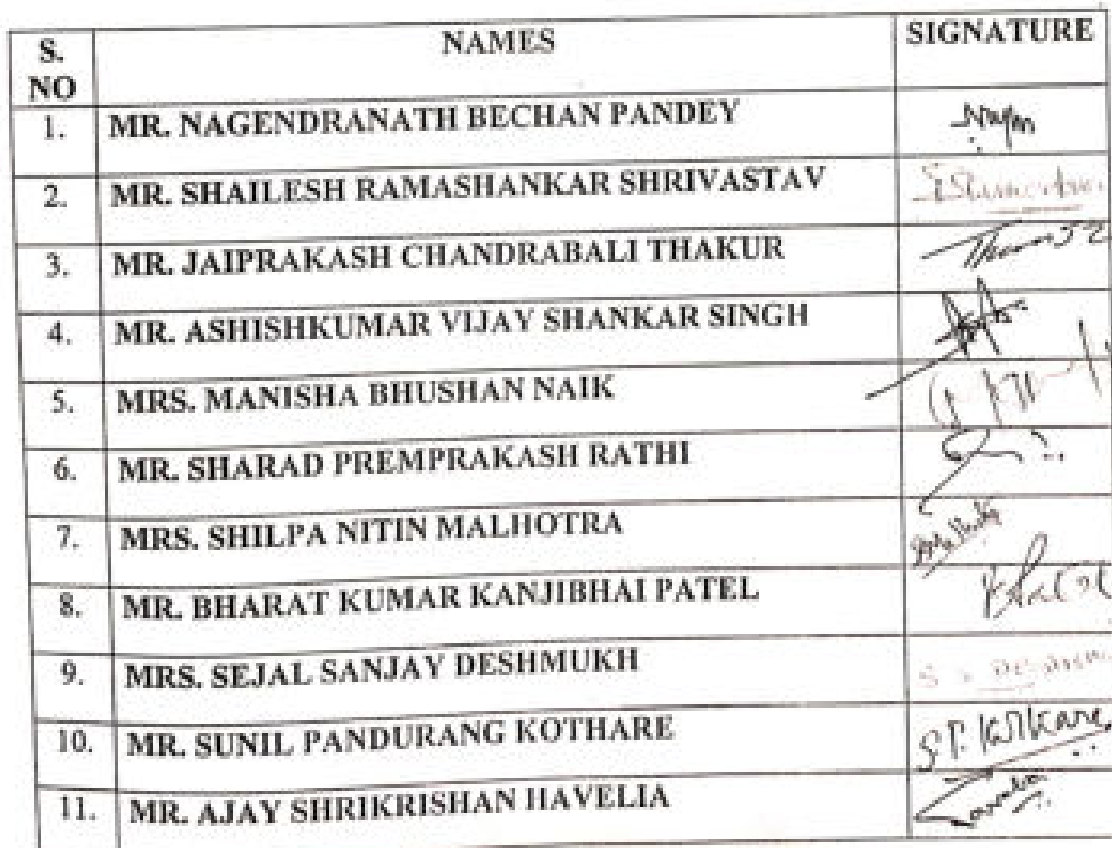 S. NO NAMES SIGNATURE
1. MR. NAGENDRANATH BECHAN PANDEY
2. MR. SHAILESH RAMASHANKAR SHRIVASTAV
3. MR. JAIPRAKASH CHANDRABALI THAKUR
4. MR. ASHISHKUMAR VIJAY SHANKAR SINGH
5. MRS. MANISHA BHUSHAN NAIK
6. MR. SHARAD PREMPRAKASH RATHI
7. MRS. SHILPA NITIN MALHOTRA
8. MR. BHARAT KUMAR KANJIBHAI PATEL
9. MRS. SEJAL SANJAY DESHMUKH
10. MR. SUNIL PANDURANG KOTHARE
11. MR. AJAY SHRIKRISHAN HAVELIA